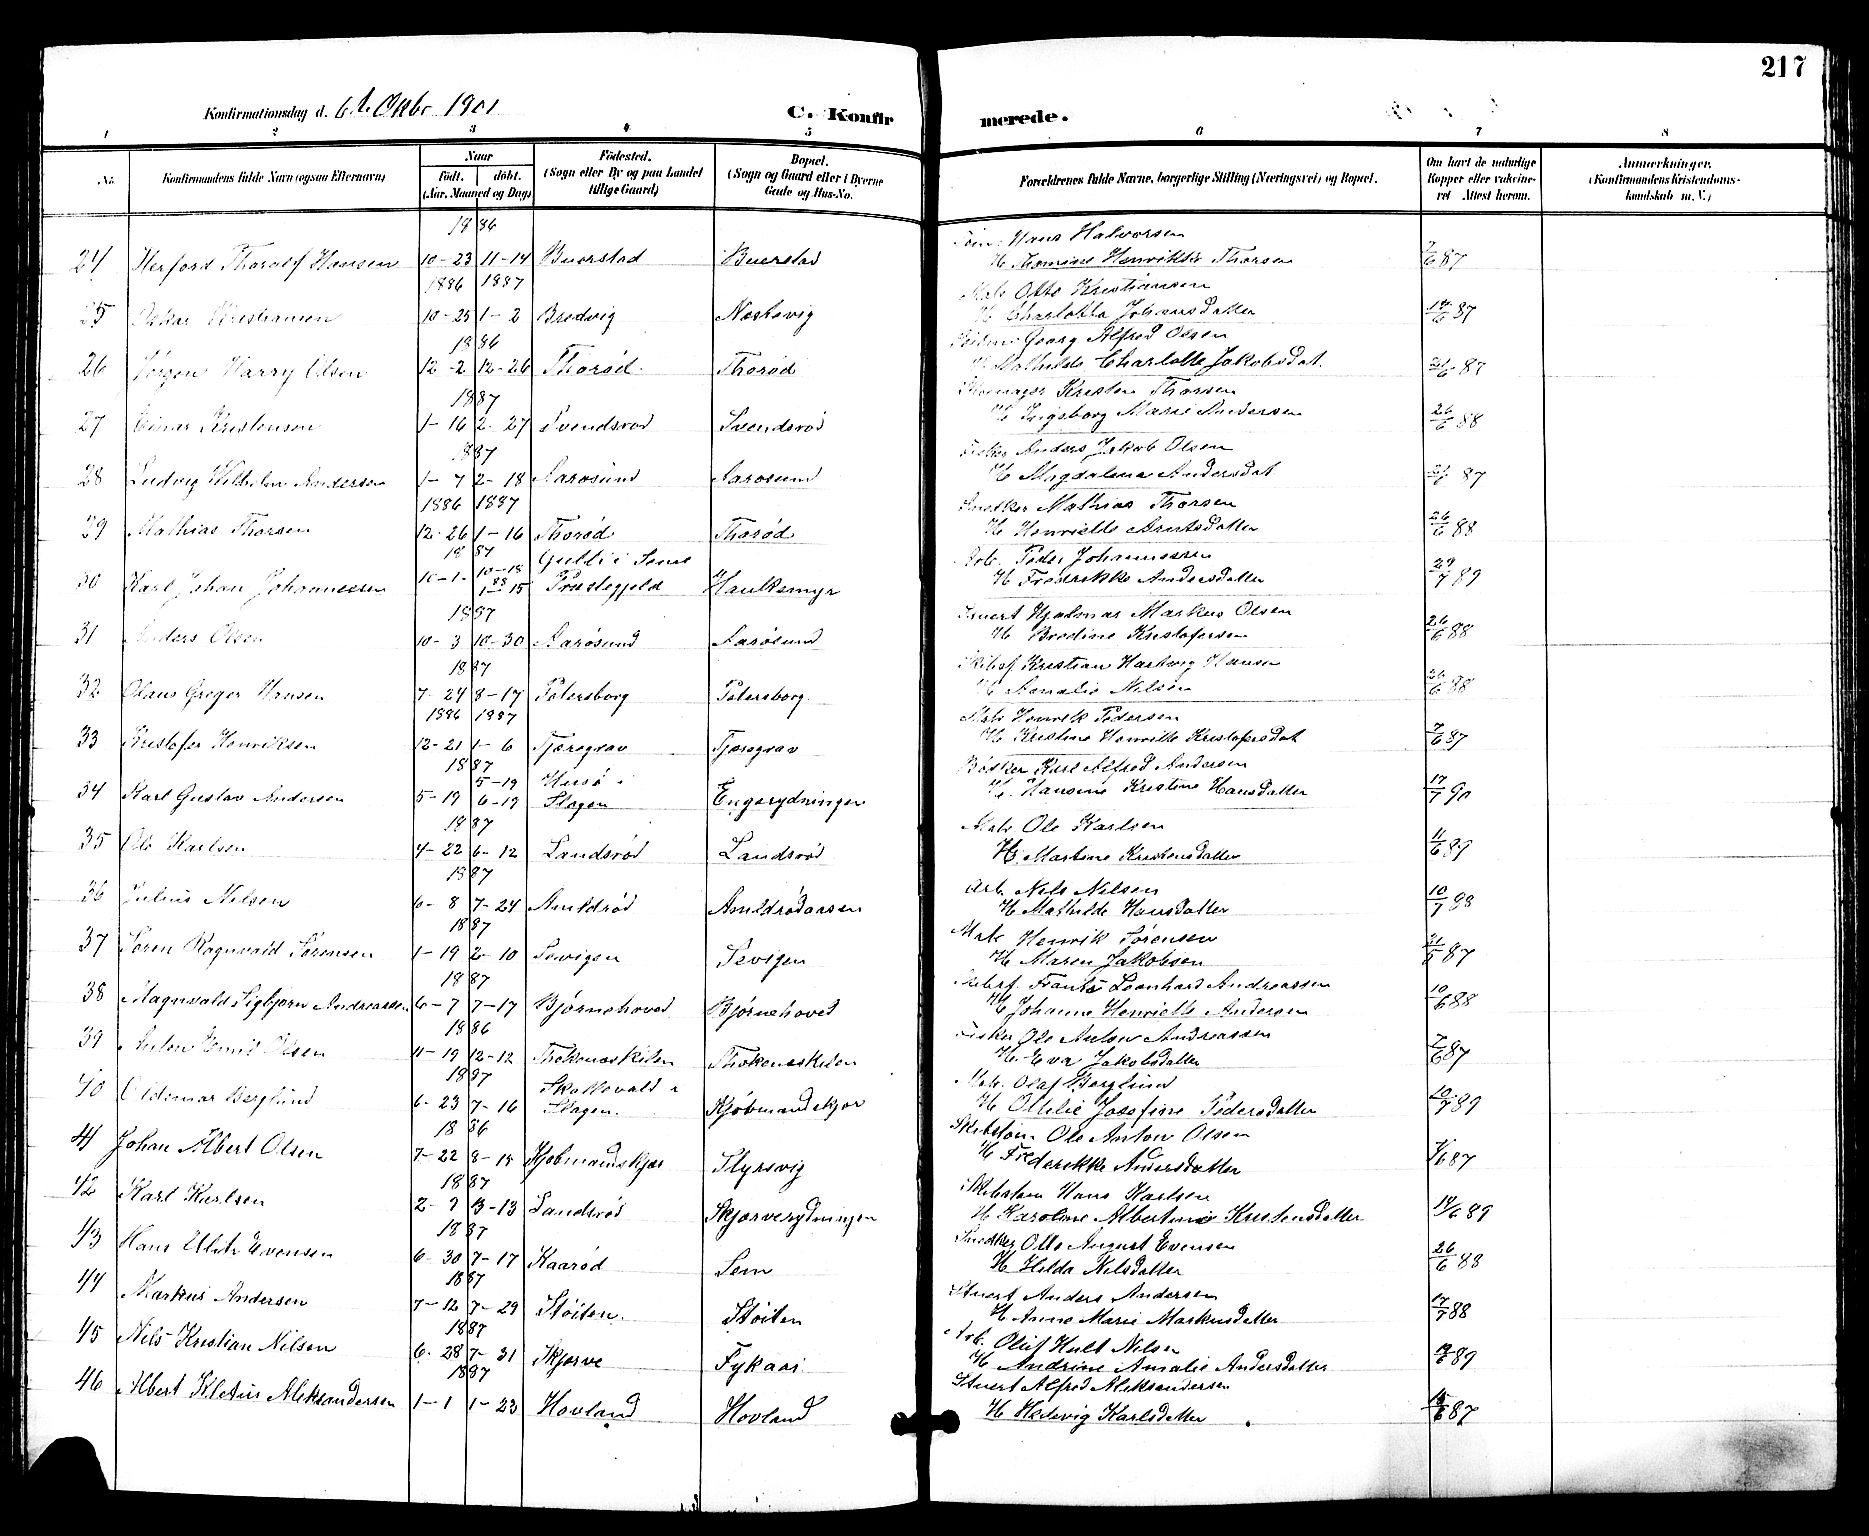 217
Konfirmationsdag d. 6te Oktbr 1901
C. Konfir
merede.
1 2 3 4 5 6 7 8
No.
Konfirmandens fulde Navn (ogsaa Efternavn)
Naar
født. døbt.
(Aar, Maaned og Dag)
Fødested.
(Sogn eller By og paa Landet
tillige Gaard)
Bopæl.
(Sogn og Gaard eller i Byerne
Gade og Hus-No.
Forældrenes fulde Navne, borgerlige Stilling (Næringsvei) og Bopæl.
Om havt de naturlige
Kopper eller vaccine-
ret Attest herom.
Anmærkninger.
(Konfirmandens Kristendoms-
kundskab m. V.)
1886
Hans Halvorsen
24 Herford Thoralf Hansen 10-23 11-14 Buerstad Buerstad H Thomine Henriks Thorsen 7/6 87
1886 1887
Matr Otto Kristiansen
25 Oskar Kristiansen 10-25 1-2 Bredvig Nestevig H Charlotte Johansdatter 14/6 87
1886
Georg Alfred Olsen
26 Jørgen Harry Olsen 12-2 12-26 Thorød Thorød H Mathilde Charlotte Jakobsdat. 21/6 87
1887
Kristen Thorsen
27 Einar Kristensen 1-16 2-27 Svendsrød Svendsrød H Ingeborg Marie Andersen 26/6 88
1887
Fisker Anders Jakob Olsen
28 Ludvig Vilhelm Andersen 1-7 2-18 Aarøsund Aarøsund H Magdalena Andersdat 21/6 87
1886 1887
Snedker Mathias Thorsen
29 Mathias Thorsen 12-26 1-16 Thorød Thorød H Henriette Arntsdatter 26/6 88
1887 Gulli i Sems
Arb. Peder Johannessen
30 Karl Johan Johannessen 10-1- 10-18 88 1-15 Præstegjeld Haukemyr H Fredrikke Andersdatter 29/7 89
1887
Stuert Hjalmar Markus Olsen
31 Anders Olsen 10-3 10-30 Aarøsund Aarøsund H Bredine Kristofersen 26/6 88
1887
Skibsf Kristian Hartvig Hansen
32 Olaus Greger Hansen 7-24 8-17 Petersborg Petersborg H Amalie Nilsen 26/6 88
1886 1887
Matr Henrik Pedersen
33 Kristofer Henriksen 12-21 1-6 Tjæregrav Tjæregrav H Kristine Henriette Kristofersdat 7/6 87
1887
5-19 Husø i
Bødker Karl Alfred Andersen
34 Karl Gustav Andersen 5-19 6-19 Slagen Engerydningen H. Hansine Kristine Hansdatter 17/7 90
1887
Matr Ole Karlsen
35 Ole Karlsen 4-22 6-12 Landsrød Landsrød H. Martine Kristensdatter 11/6 89
1887
Arb. Nils Nilsen
36 Julius Nilsen 6-8 7-24 Amldrød Amldrødaasen H Mathilde Hansdatter 10/7 88
1887
Matr Henrik Sørensen
37 Søren Ragnvald Sørensen 1-19 2-10 Sevigen Sevigen H Maren Jakobsen 21/6 87
1887
Skibsf. Frants Leonhard Andreassen
38 Magnvald Sigbjørn Andreassen 6-7 7-17 Bjørnehoved Bjørnehovet H Johanne Henriette Andersen 10/6 88
1886
Fisker Ole Anton Andreassen
39 Anton Emil Olsen 11-19 12-12 Thokeneskilen H. Eva Jakobsdatter 7/6 87
1887 Skallevald i
Matr. Olaf Berglund
40 Oldemar Berglund 6-23 7-16 Slagen. Kjøbmandskjær H Ottilie Josefine Pedersdatter 20/7 89
1886
Skibstøm. Ole Anton Olsen
41 Johan Albert Olsen 7-22 8-18 Kjøbmandskjær Styrsvig H Frederikke Andersdatter 7/6 87
1887
Skibstøm Hans Karlsen
42 Karl Karlsen 2-7 3-13 Landsrød Skjærverydningen H Karoline Albertine Kristensdatter 14/6 89
1887
Snedker Otto August Evensen
43 Hans Ulrik Evensen 6-30 7-17 Kaarød Sem H Hilda Nilsdatter 26/6 88
1887
Stuert Anders Andersen
44 Markus Andersen 7-12 7-29 Støiten. Støiten H Anne Marie Markusdatter 17/7 88
1887
Arb. Oluf Hult Nilsen
45 Nils Kristian Nilsen 6-28 7-31 Skjærve Fykaas H Andrine Amalie Andersdatter 89
1887
Stuert Alfred Aleksandersen
46 Albert Kletus Aleksandersen 1-1 1-23 Hovland Hovland H Hedevig Karlsdatter 87